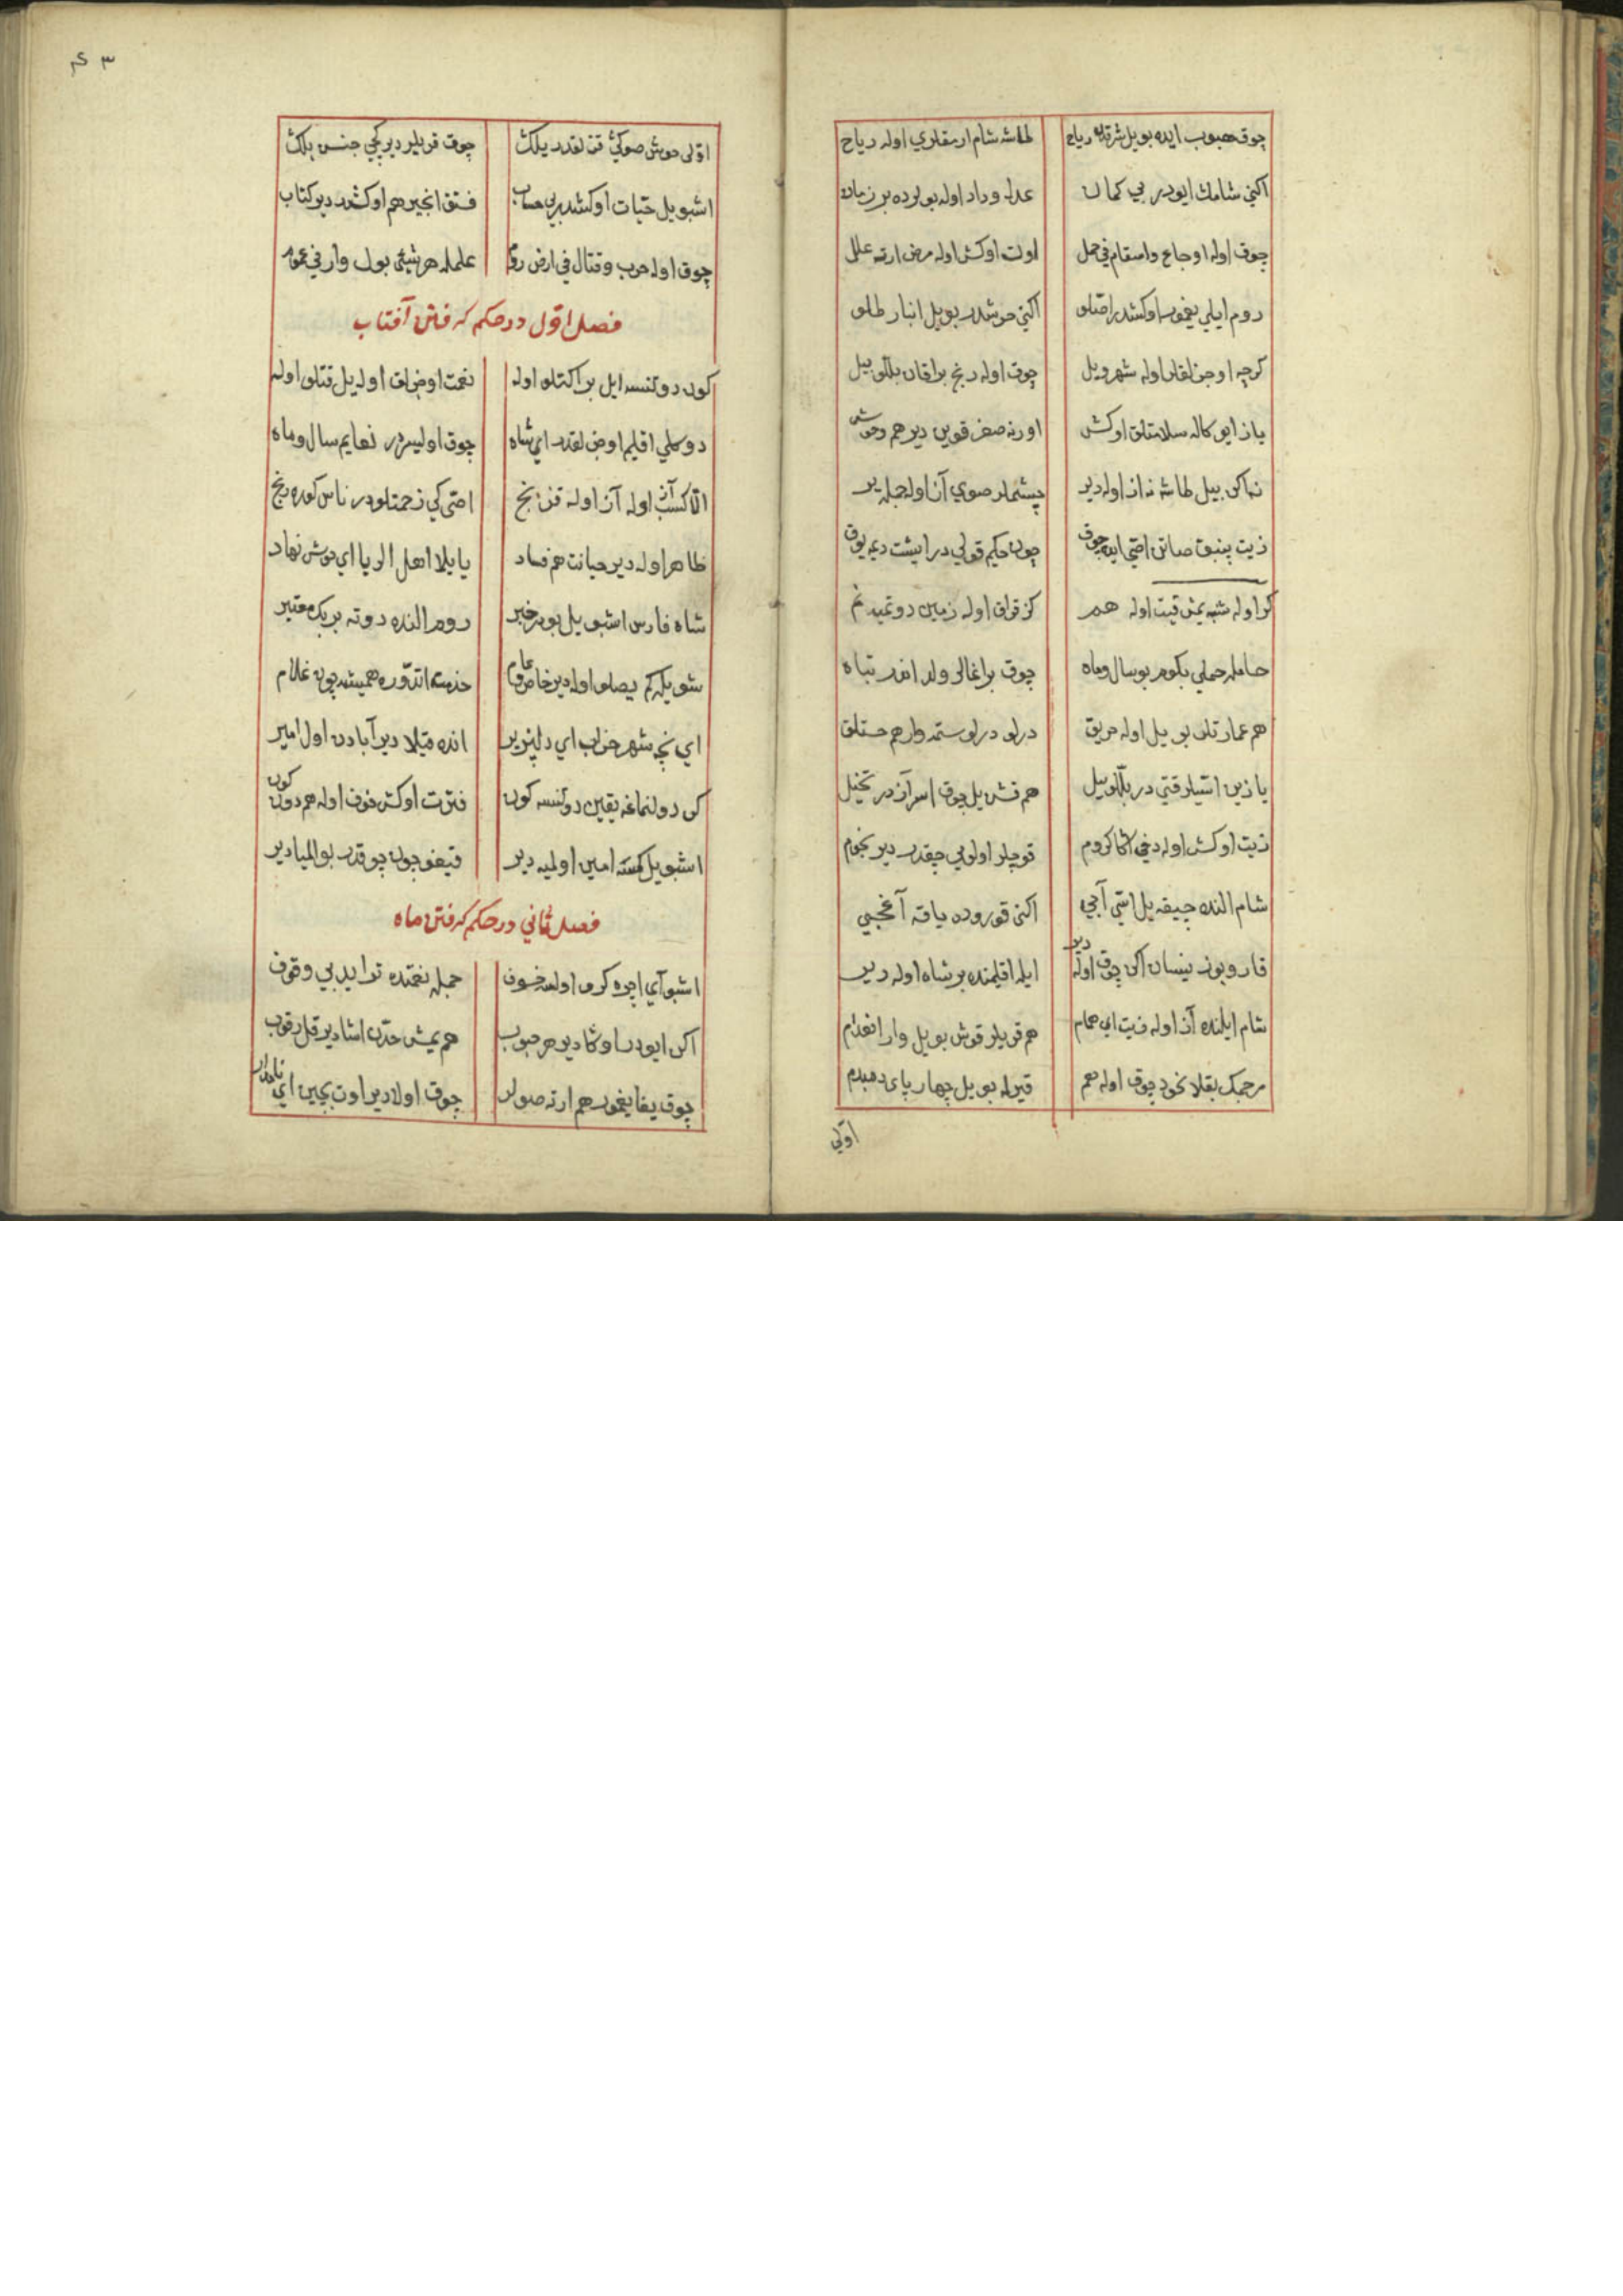 چوق هبوب ایده بو ییل شرقدن ریاح طاشه شام ارمقلری اوله ریاح
اکنی شامك ایودر بی کمان عدل وداد اوله بو یرده بر زمان
چوق اوله اوجاع واسقام فی حمل اولت اوکش اوله مرض ارته علل
روم ایلی یغمور اوکشدر اصلو اکنی خوشدر بو ییل انبار طلو
کرچه اوجزلقلر اوله شهر وییل چوق اوله رنج براقان بللو بیل
یاز ایو کاله سلامتلق اوکش اورنه صغر قوین دیر هم وحوش
نه اکن بیل طاشه نه از اوله دیر چشمه‌لر صوی آز اوله جمله یر
زیت پنبق صاتن اصی ایده چوق چون حکیم قولی در ایشت دیمه یوق
کر اوله شبه یمش قیت اوله هم کز قراق اوله زمین دوتمیه نم
حامله حملی بکوم بو سال وماه چوق براغالر ولد اندر تباه
هم عمارتلق بو ییل اوله حریق درلو درلو ستمه وار هم خستلق
یازین استیلر قتی در بللو بیل هم قش ییل چوق اسر آزدر نخیل
زیت اوکش اوله دخی اکا کروم قوچلر اولوبی چقدر دیر نجوم
شام النده چیقه ییل استی آجی اکنی قوروده یاقه آغجی
قار وبوز نیسان اکن چوق اوله دیر ایله اقلیمنده بر شاه اوله دیر
شام ایلنده آز اوله زیت ای همام هم قریلر قوش بو ییل وار انعدام
مرجمك بقلا نخود چوق اوله هم قیرله بو ییل چهار پای دمبدم
اولی
اولی خوش صوکی قز نقدر ییلك چوق قریلر دیر کچی جنس بلك
اشبو ییل حیات اوکشدر بی حساب فستق انجیر هم اوکشدر دیر کتاب
چوق اوله حرب وقتال فی ارض روم علمله هر شیئی بول وار فی عموم
فصل اول در حکم کرفتن آفتاب
کون دوتلسه ایل براکتلو اوله نعمت اوجزلق اوله ییل قتلو اوله
دوکلی اقلیم اوجزلقدر ای شاه چوق اولیسردر نعایم سال وماه
الا کسب آز اوله آز اوله قزنج اصی کی زحمتلودر ناس کوره رنج
ظاهر اوله دیر خیانت هم فساد یایلا اهل الریا ای خوش نهاد
شاه فارس اشبو ییل بودر خبر روم النده دوته بر بك معتبر
شویله کم یصلو اوله دیر خاص وعام خدمت اتدوره همیشه چون غلام
ای نچه شهر خراب ای دلپذیر انده قیلا دیر آبادن اول امیر
کن دولنماغه یقین دوتلسه کون فترت اوکش خوف اوله هم دون کون
اشبو ییل کمسنه امین اولمیه دیر قیغو چون چوقدر بو المیا دیر
فصل ثانی در حکم کرفتن ماه
اشبو آی اچره کر اولسه خسوف جمله نغمتده ترایدبی وقوف
اکن ایودر اوکشا دیر هر حبوب هم یمش حدن اشا دیر قل رقوب
چوق یغا یغمور هم ارته صولر چوق اولادیر اوت بچین ای نامدار